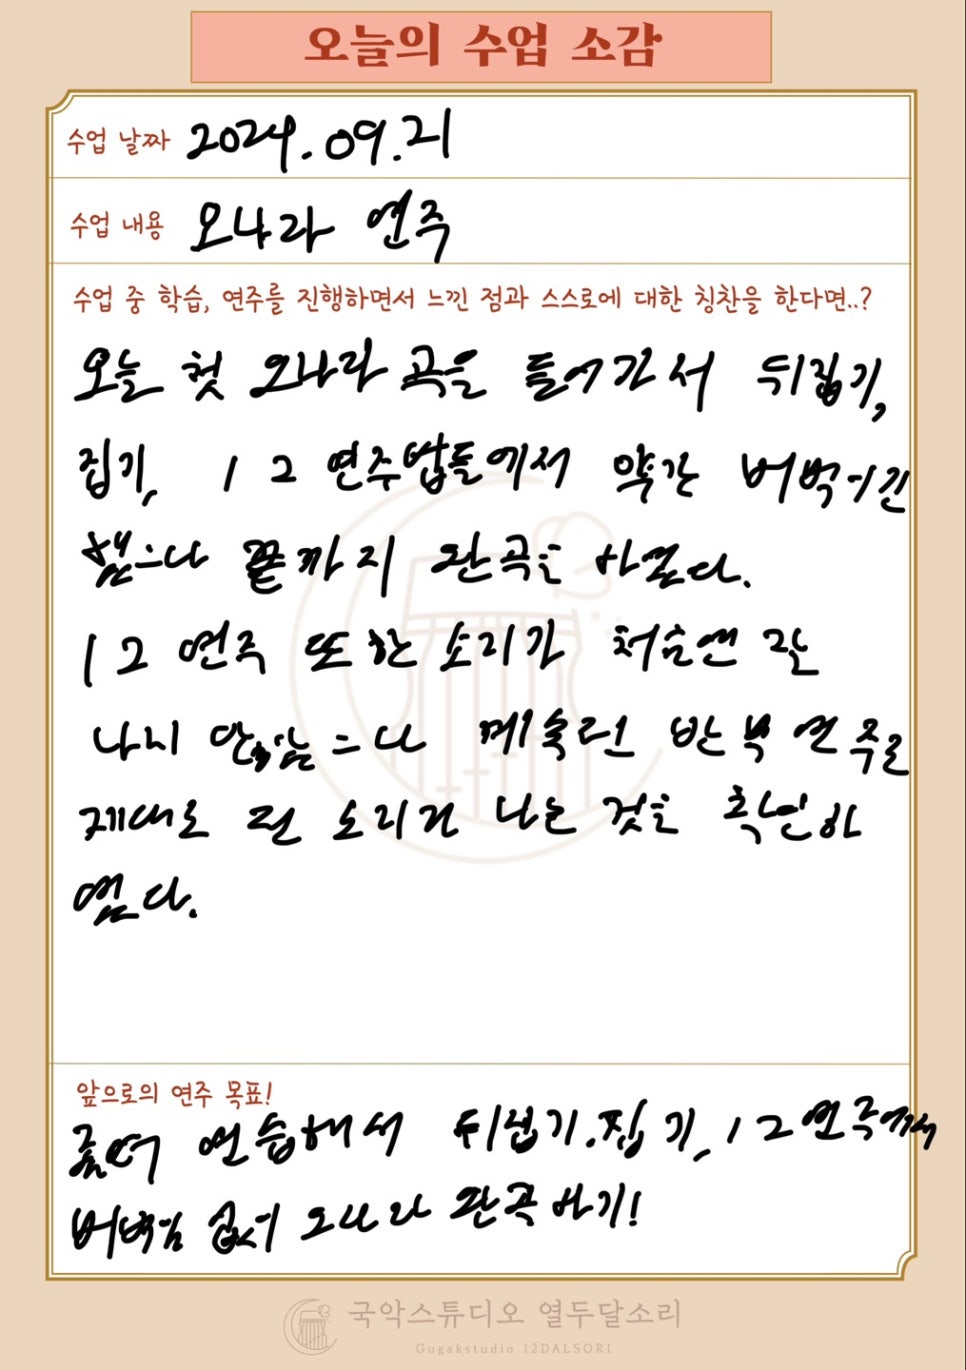 오늘의 수업 소감
수업 날짜 2024.09.21
수업 내용 오나라 연주
수업 중 학습, 연주를 진행하면서 느낀 점과 스스로에 대한 칭찬을 한다면..?
오늘 첫 오나라 곡을 들어가서 뒤집기,
집기, 12 연주법들에서 약간 버벅이긴
했으나 끝까지 완곡을 하였다.
12 연주 또한 소리가 처음엔 잘
나지 않았으나 계속된 반복 연주로
제대로 된 소리가 나는 것을 확인하
였다.
앞으로의 연주 목표!
좀더 연습해서 뒤집기, 집기, 12 연주까지
버벅임 없이 오나라 완곡하기!
국악스튜디오 열두달소리
Gugakstudio 12DALSORI